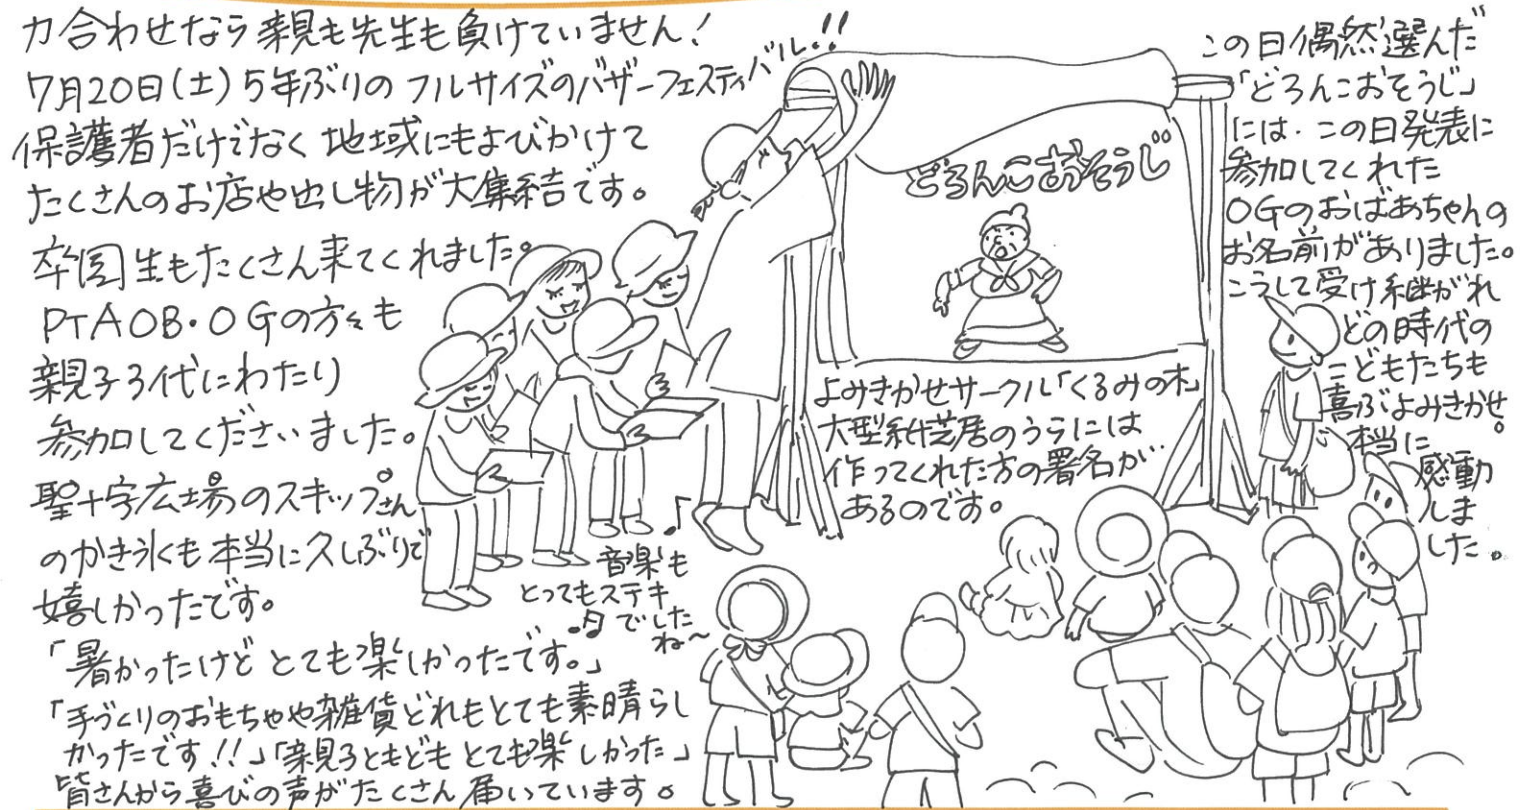 力合わせなら親も先生も負けていません!
7月20日(土)5年ぶりのフルサイズのバザーフェスティバル!!
保護者だけでなく地域にもよびかけて
たくさんのお店や出し物が大集結です。
卒園生もたくさん来てくれました。
PTAOB・OGの方々も
親子3代にわたり
参加してくださいました。
聖十字広場のスキップさん
のかき氷も本当に久しぶりで
嬉しかったです。
「暑かったけどとても楽しかったです。」
「手づくりのおもちゃや雑貨どれもとても素晴らし
かったです!!」「親子ともどもとても楽しかった」
皆さんから喜びの声がたくさん届いています。
音楽も
とってもステキ
でした
ね〜
どろんこおそうじ
よみきかせサークル「くるみの木」
大型紙芝居のうらには
作ってくれた方の署名が
あるのです。
この日偶然選んだ
「どろんこおそうじ」
には、この日発表に
参加してくれた
OGのおばあちゃんの
お名前がありました。
こうして受け継がれ
どの時代の
こどもたちも
喜ぶよみきかせ。
本当に
感動
しま
した。